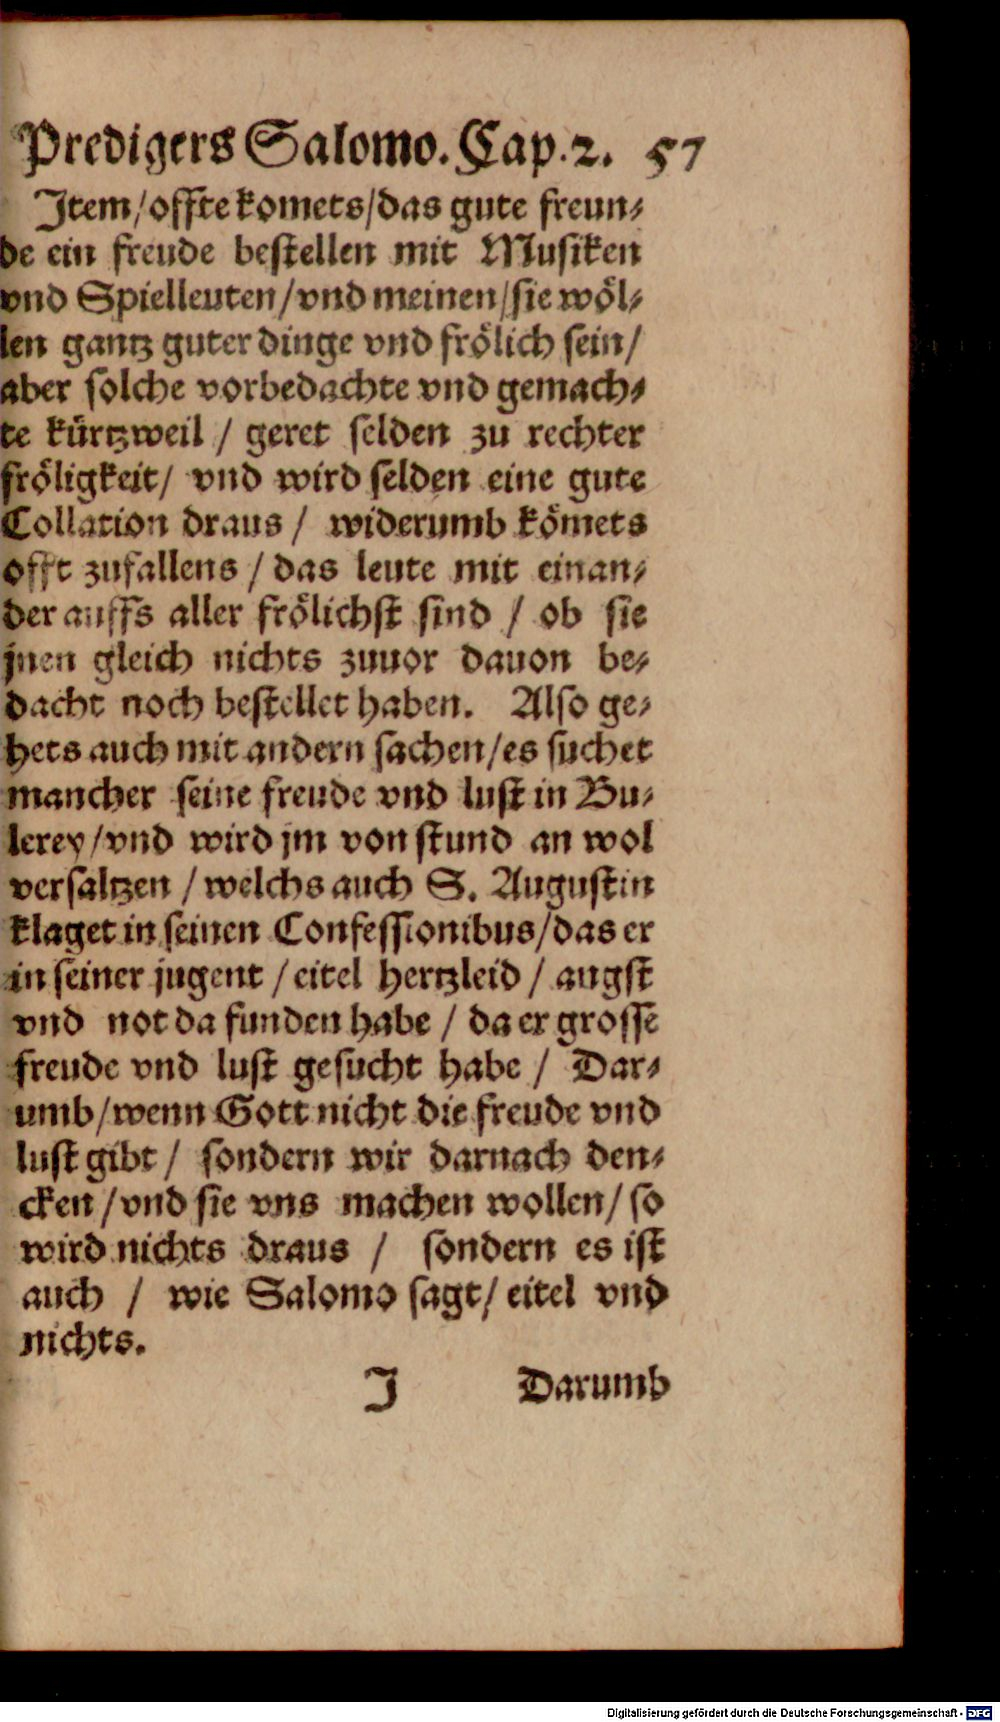 Predigers Salomo. Cap. 2. 57
Item/offte komets/das gute freun⸗
de ein freude bestellen mit Musiken
vnd Spielleuten/vnd meinen/sie wöl⸗
len gantz guter dinge vnd frölich sein/
aber solche vorbedachte vnd gemach⸗
te kürtzweil / geret selden zu rechter
fröligkeit/ vnd wird selden eine gute
Collation draus / widerumb kömets
offt zufallens / das leute mit einan⸗
der auffs aller frölichst sind / ob sie
jnen gleich nichts zuuor dauon be⸗
dacht noch bestellet haben. Also ge⸗
hets auch mit andern sachen/es suchet
mancher seine freude vnd lust in Bu⸗
lerey/vnd wird jm von stund an wol
versaltzen / welchs auch S. Augustin
klaget in seinen Confessionibus/das er
in seiner jugent / eitel hertzleid / angst
vnd not da funden habe / da er grosse
freude vnd lust gesucht habe / Dar⸗
umb/wenn Gott nicht die freude vnd
lust gibt / sondern wir darnach den⸗
cken /vnd sie vns machen wollen/ so
wird nichts draus / sondern es ist
auch / wie Salomo sagt/ eitel vnd
nichts.
J Darumb
Digitalisierung gefördert durch die Deutsche Forschungsgemeinschaft - DFG